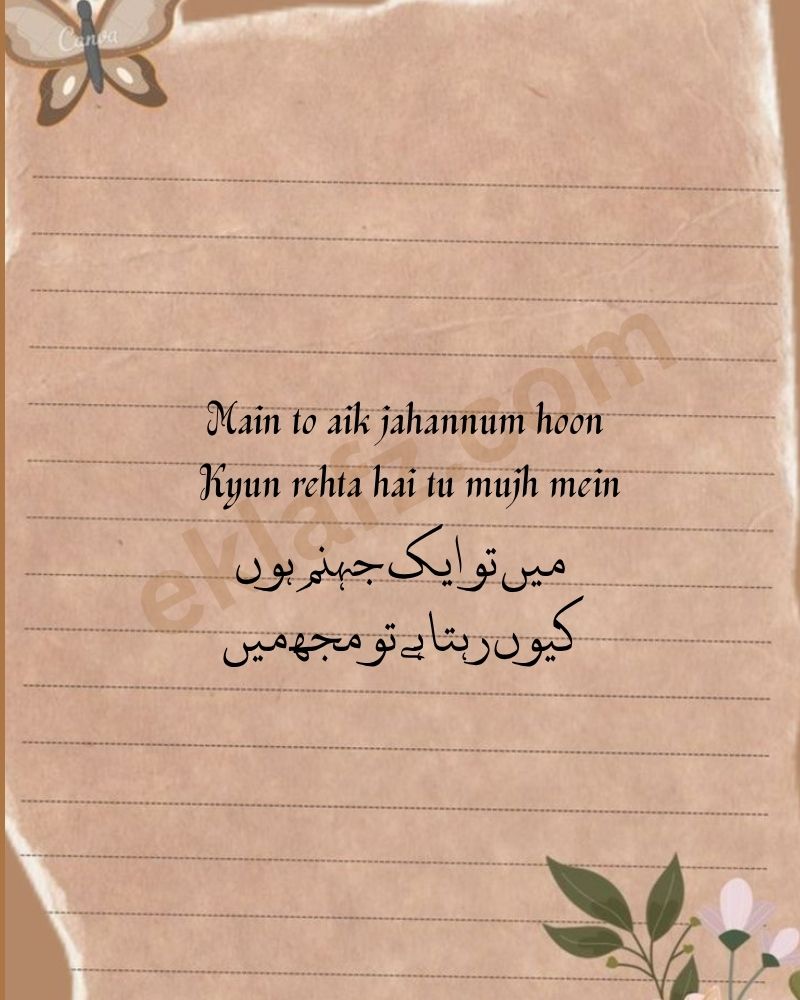 Canva
Main to aik jahannum hoon
Kyun rehta hai tu mujh mein
میں تو ایک جہنم ہوں
کیوں رہتا ہے تو مجھ میں
eklafz.com